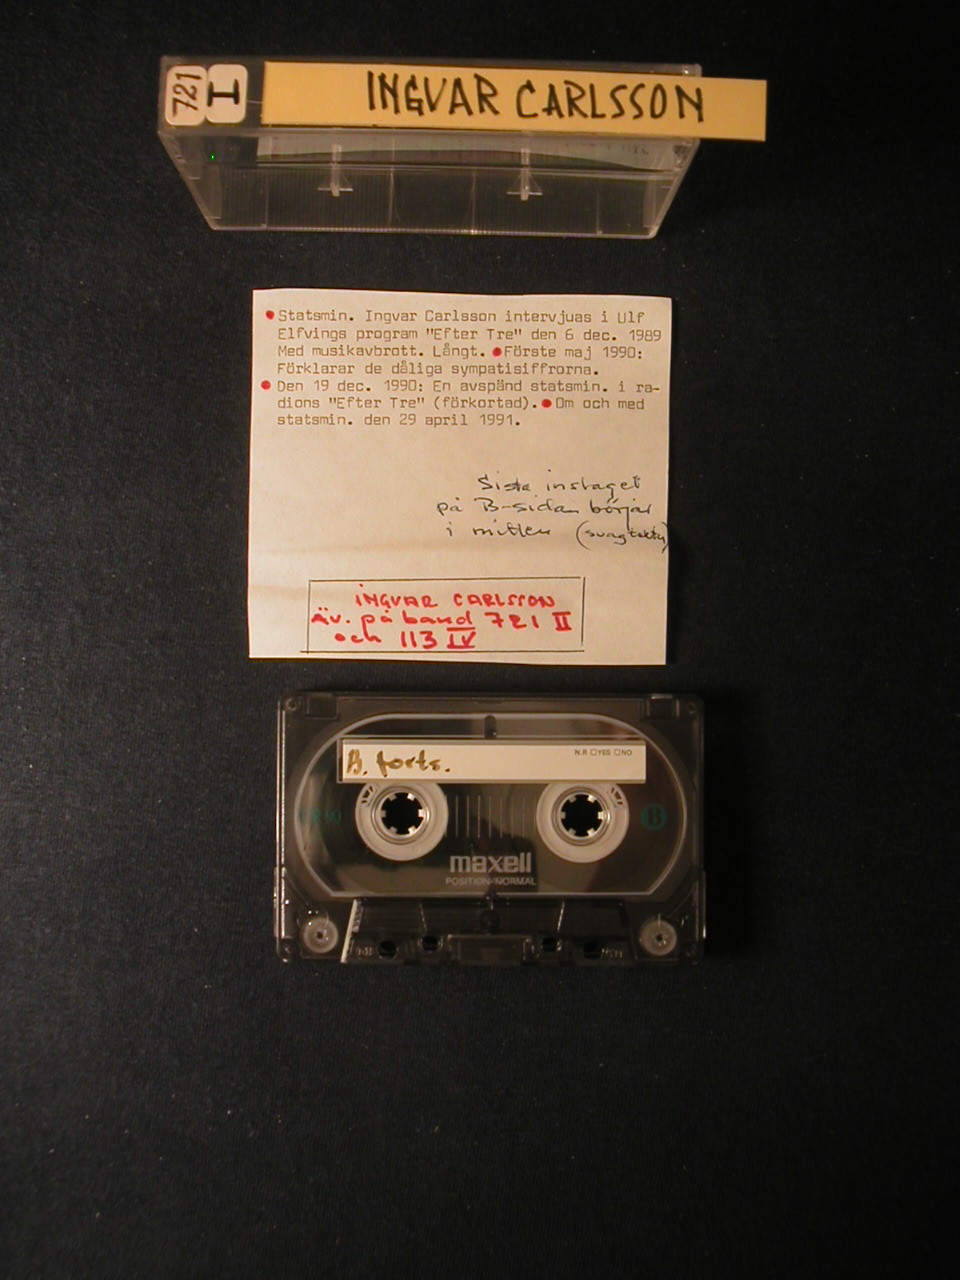 721
I
INGVAR CARLSSON
Statsmin. Ingvar Carlsson intervjuas i Ulf
Elfvings program "Efter Tre" den 6 dec. 1989
Med musikavbrott. Långt. Förste maj 1990:
Förklarar de dåliga sympatisiffrorna.
Den 19 dec. 1990: En avspänd statsmin. i ra-
dions "Efter Tre" (förkortad). Om och med
statsmin. den 29 april 1991.
Sista inslaget
på B-sidan börjar
i mitten
INGVAR CARLSSON
äv. på band 721 II
och 113 IV
B. forts.
N.R □YES □NO
B
maxell
POSITION·NORMAL